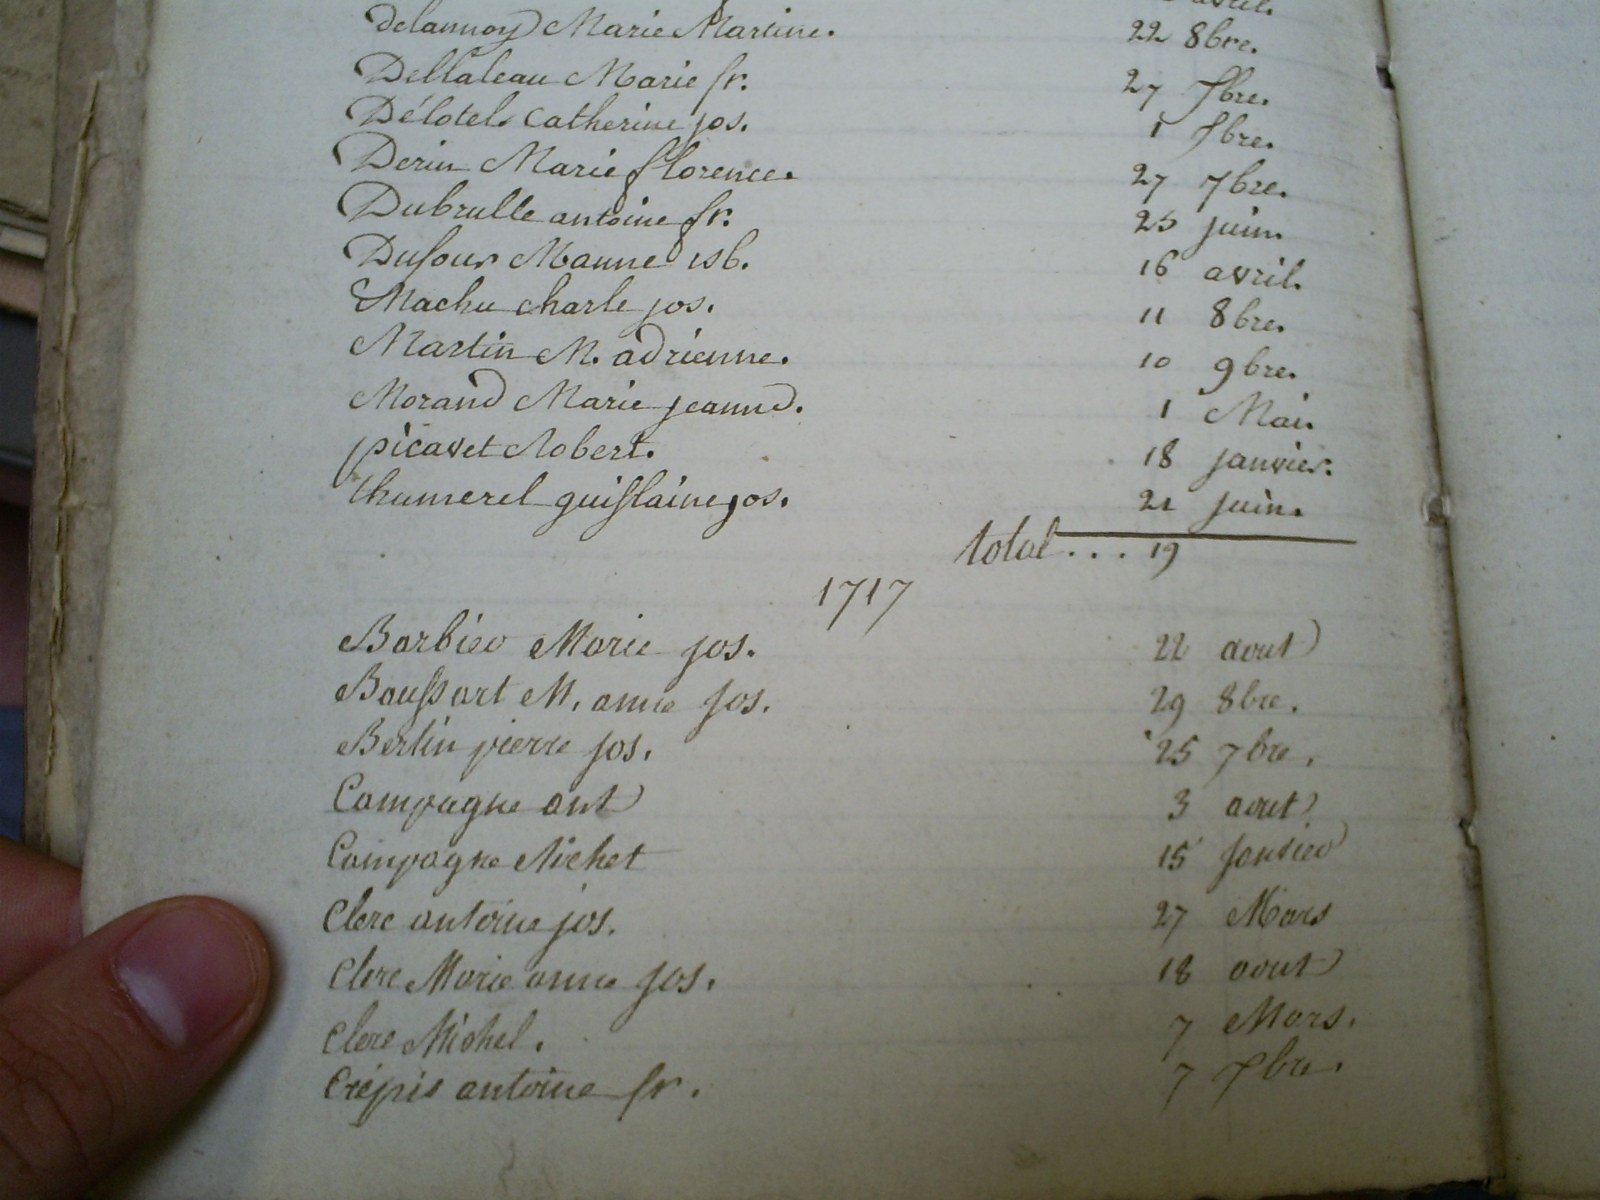 avril.
Delannoy Marie Martine. 22 8bre.
Dellaleau Marie fr. 27 7bre.
Délotel Catherine jos. 1 7bre.
Derin Marie florence. 27 7bre.
Dubrulle antoine fr. 25 juin.
Dufour Marie isb. 16 avril.
Machu charle jos. 11 8bre.
Martin M. adrienne. 10 9bre.
Morand Marie jeanne. 1 Mai.
picavet Robert. 18 janvier.
thumerel guislaine jos. 21 juin.
total... 19
1717
Barbier Marie jos. 22 aout
Boussart M. anne jos. 29 8bre.
Bertin pierre jos. 25 7bre.
Campagne ant 3 aout
Campagne Michel 15 Janvier
Clerc antoine jos. 27 Mars
Clerc Marie anne jos. 18 aout
Clerc Michel. 7 Mars.
Crépis antoine fr. 7 7bre.